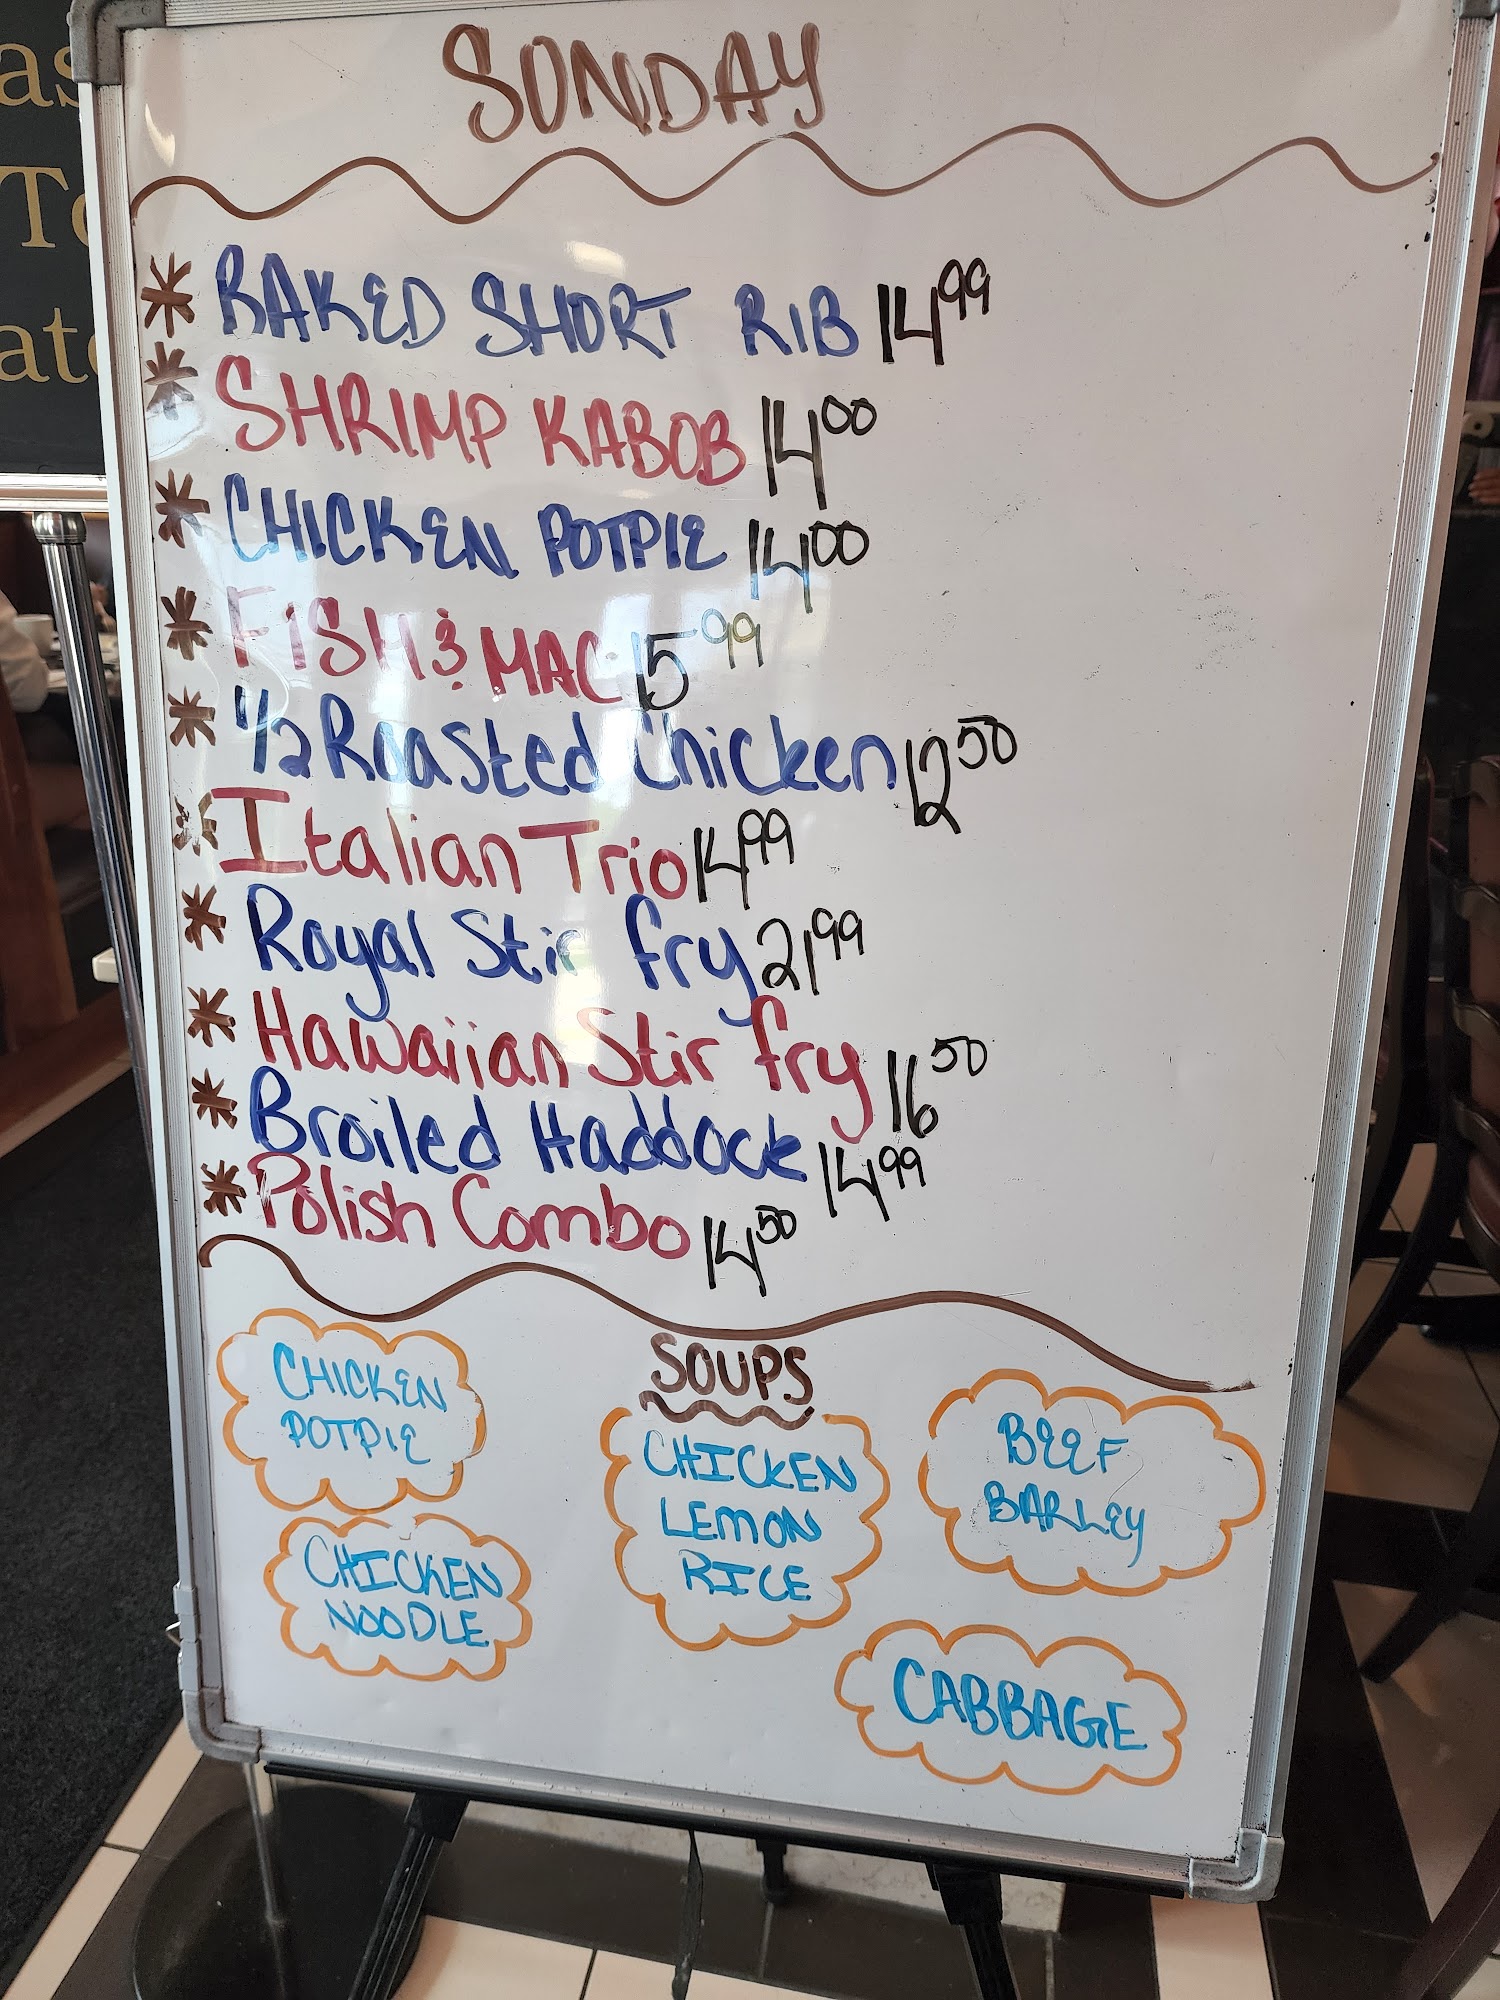 SUNDAY
* BAKED SHORT RIB 14.99
* SHRIMP KABOB 14.00
* CHICKEN POTPIE 14.00
* FISH & MAC 15.99
* 1/2 Roasted Chicken 12.50
* Italian Trio 14.99
* Royal Stir fry 21.99
* Hawaiian Stir fry 16.50
* Broiled Haddock 14.99
* Polish Combo 14.50
SOUPS
CHICKEN
POTPIE
CHICKEN
NOODLE
CHICKEN
LEMON
RICE
BEEF
BARLEY
CABBAGE